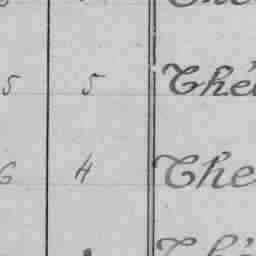 5 5 Thé
6 4 The